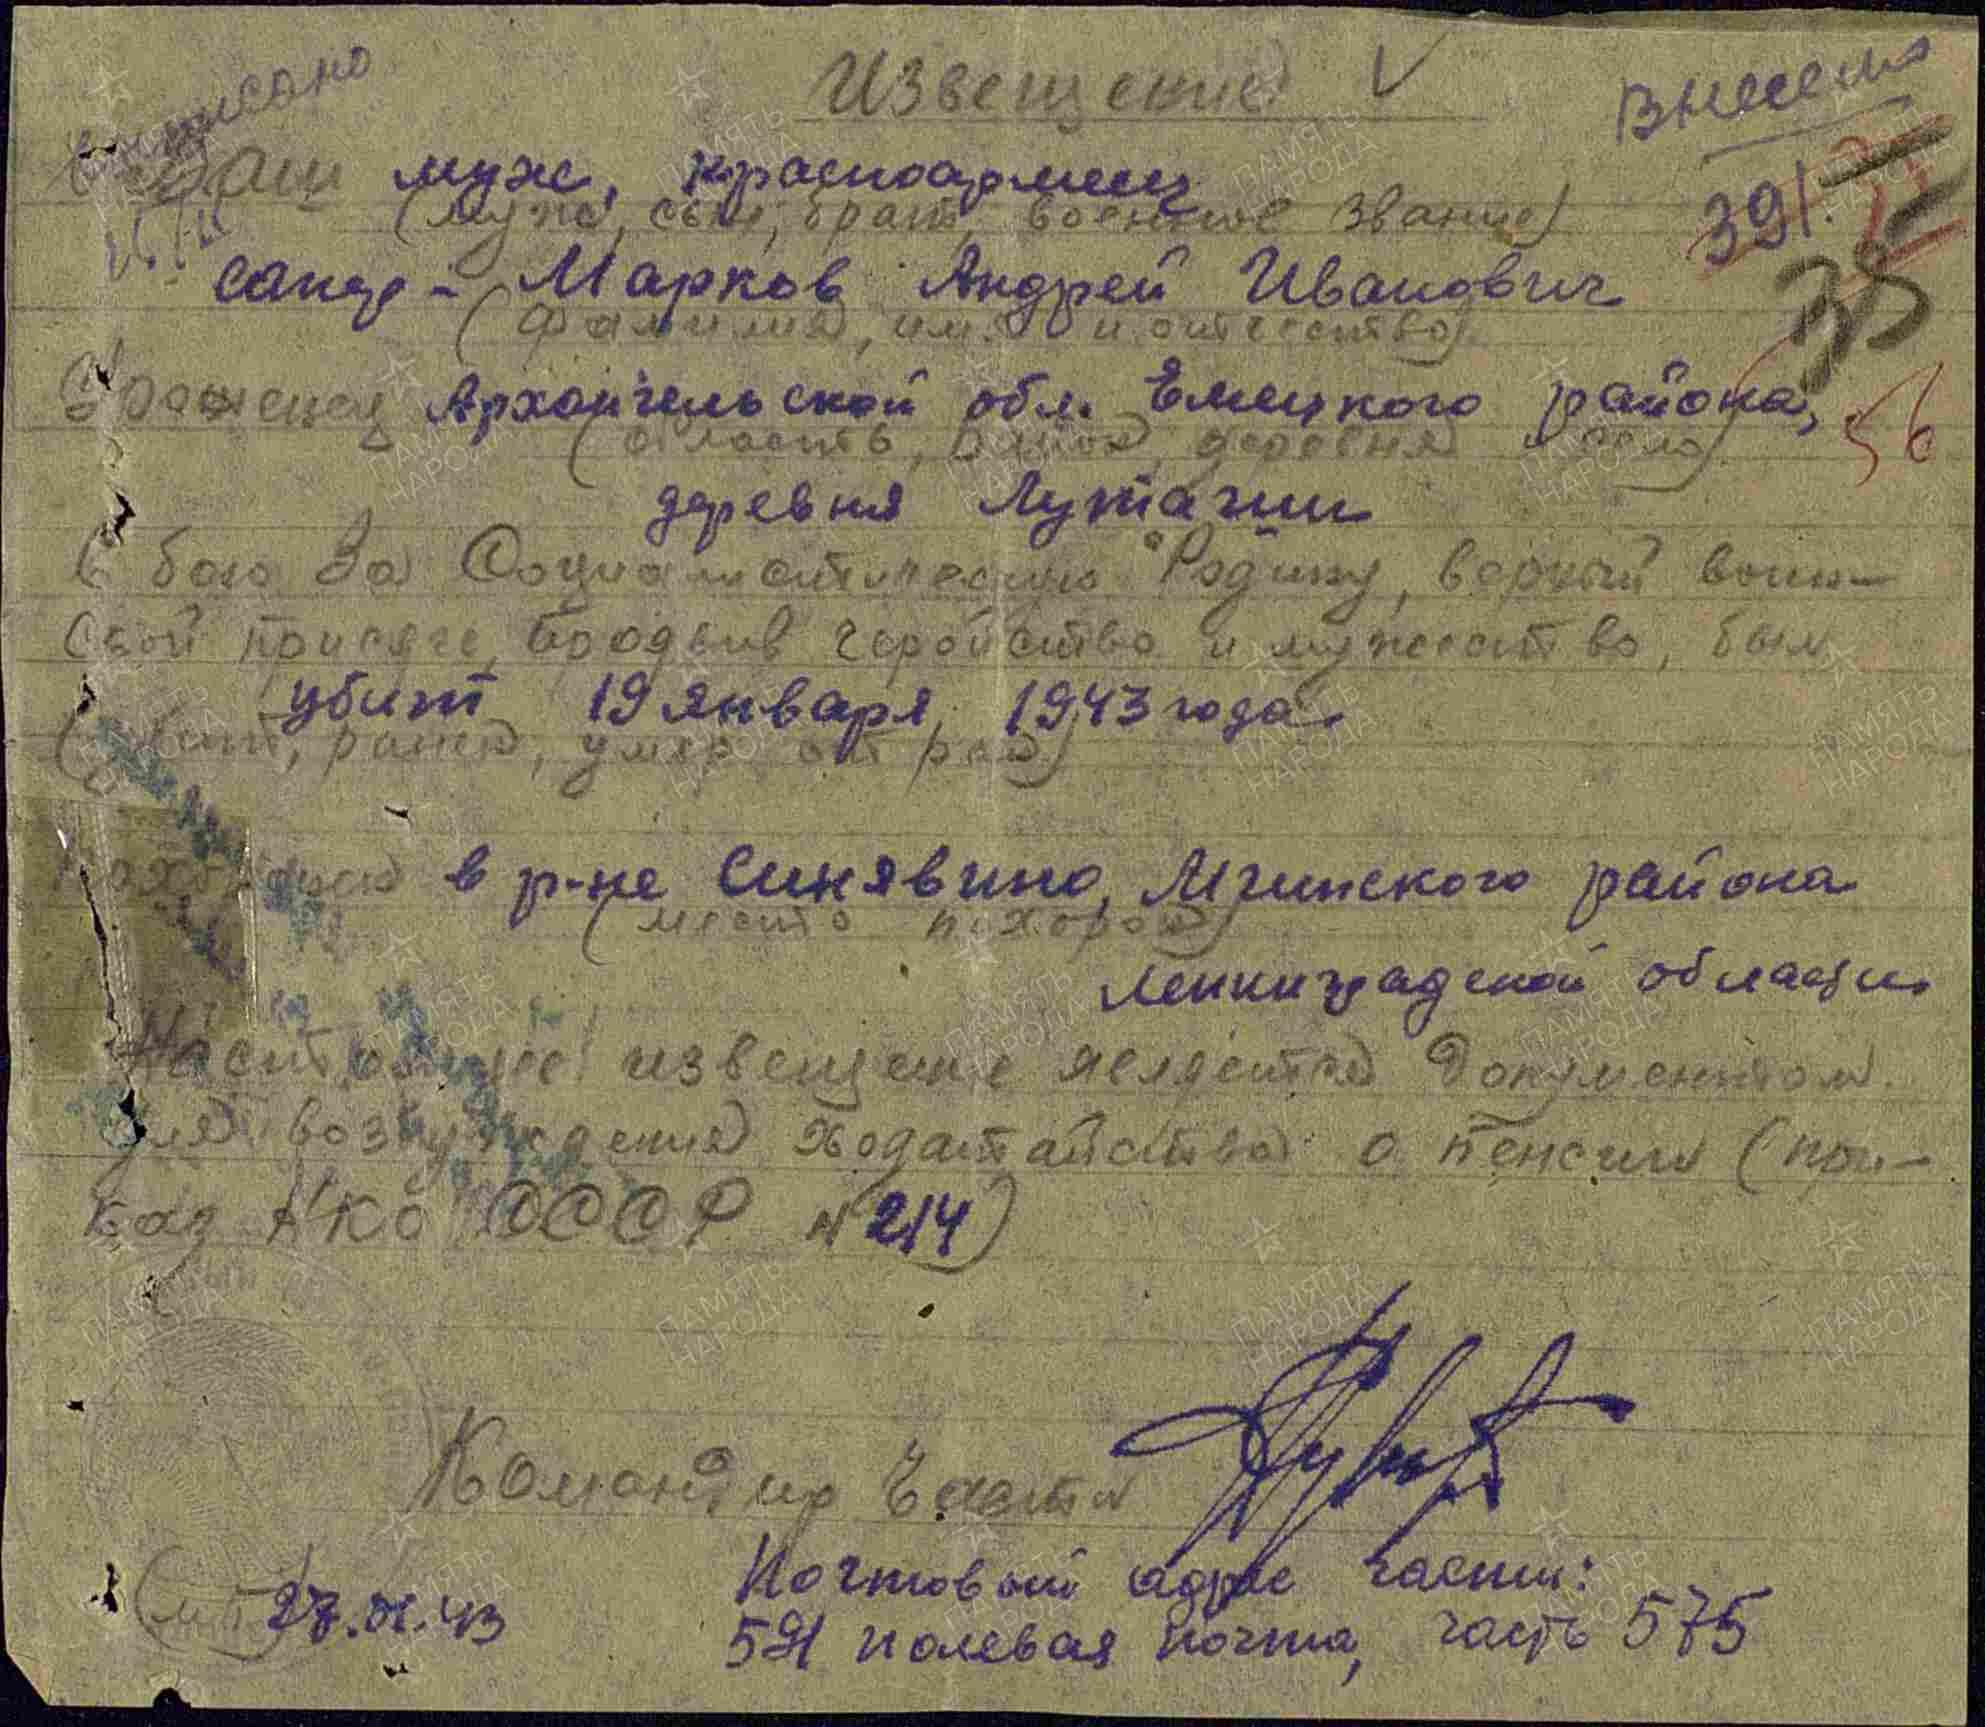 Извещение
Внесено
Ваш муж, красноармеец
391
(муж, сын, брат, военное звание)
38
сапер - Марков Андрей Иванович
(фамилия, имя и отчество)
Уроженец Архангельской обл. Емецкого района,
56
(область, район, деревня и село)
деревня Лутачии
В бою за Социалистическую Родину, верный воин-
ской присяге, проявив геройство и мужество, был
убит 19 января 1943 года.
(убит, ранен, умер от ран)
Похоронен в р-не Синявино, Мгинского района
(место похорон)
Ленинградской области.
Настоящее извещение является документом
для возбуждения ходатайства о пенсии (при-
каз НКО СССР № 214)
Командир Части
Почтовый адрес части:
(мп) 27.01.43
591 полевая почта, часть 575
ПАМЯТЬ НАРОДА